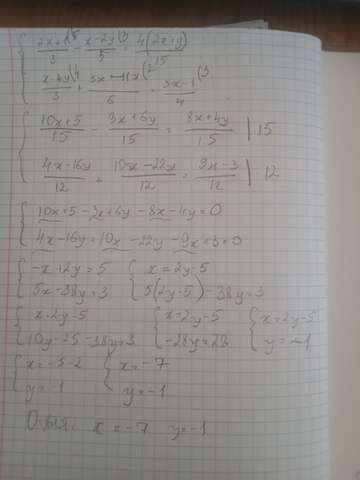 (2x+1)/3 \5 - (x-2y)/5 \3 = 4(2x+y)/15
(x-4y)/3 \4 + (5x-11x)/6 (2 = (3x-1)/4 (3
(10x+5)/15 - (3x+6y)/15 = (8x+4y)/15 | 15
(4x-16y)/12 + (10x-22y)/12 = (9x-3)/12 | 12
10x+5-3x+6y-8x-4y=0
4x-16y+10x-22y-9x+3=0
-x+2y=5 x=2y-5
5x-38y=3 5(2y-5)-38y=3
x-2y-5 x-2y-5 x=2y-5
10y-25-38y=3 -28y=28 y=-1
x=-5-2 x=-7
y=-1 y=-1
Ответ: x=-7 y=-1